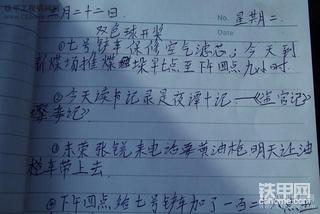 二月二十二日. No. 星期二.
双色球开奖
①七号铲车保修空气滤芯;今天到
新煤场推煤垛平七点至下午四点九小时.
②今天读书记录是夜谭十记——《盗官记》
《娶妾记》
③东荣张锐来电话要黄油枪明天让油
槽车带上去
④下午四点给七号铲车加了一百二
铁甲网